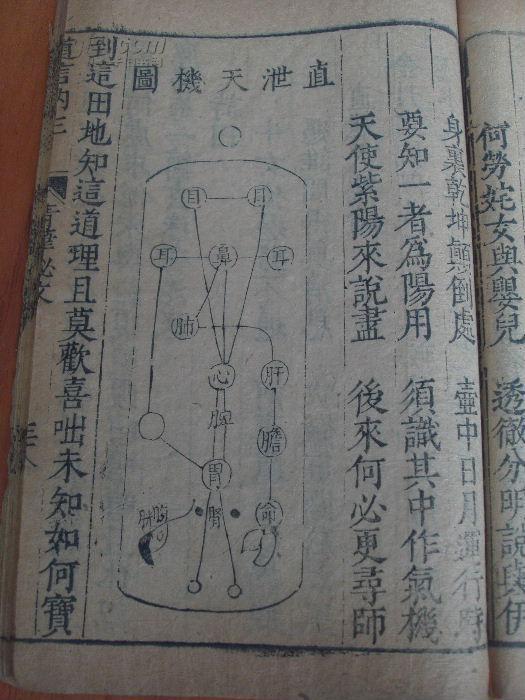 何勞姹女與嬰兒 透徹分明說與伊
身裏乾坤顛倒處 壺中日月運行時
要知一者為陽用 須識其中作氣機
天使紫陽來說盡 後來何必更尋師
直泄天機圖
目 目
耳 鼻 耳
肺
心 肝
脾
膽
胃
腎
到這田地知這道理且莫歡喜咄未知如何寶